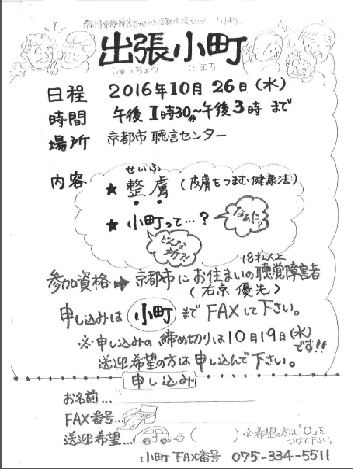 出張小町
しゅっちょう こまち
日程 2016年10月26日(水)
時間 午後1時30分~午後3時まで
場所 京都市聴言センター
内容
せいふ
★整膚(皮膚をつまむ健康法)
★小町って…?
なあに?
どんな所??
18才以上
参加資格➡京都市にお住まいの聴覚障害者
(右京優先)
申し込みは小町までFAXにて下さい。
※申し込みの締め切りは10月19日(水)
です!!
送迎希望の方は申し込んで下さい。
申し込み
お名前…
FAX番号…
送迎希望…( )※希望の方は"○"を
つけて下さい。
小町 FAX番号 075-334-5511